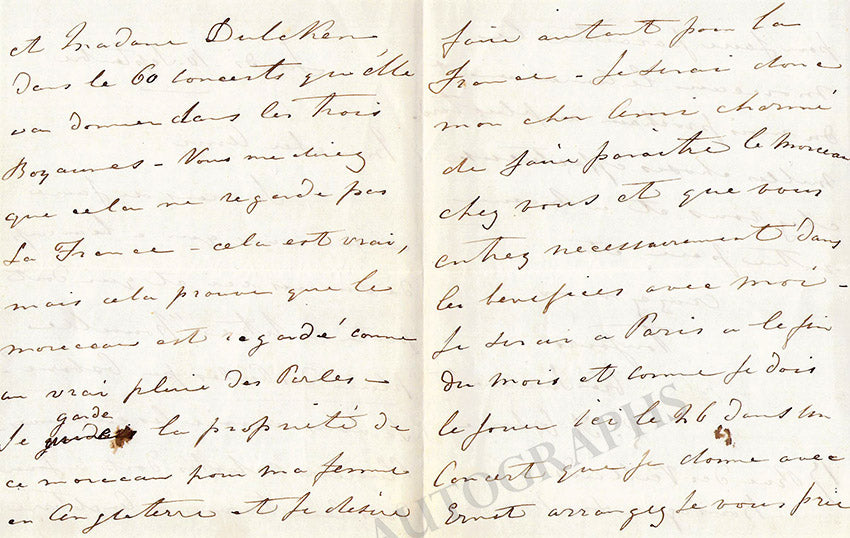 et Madame Dulcken
dans le 60 concerts que elle
va donner dans les trois
Royaumes - Vous me direz
que cela ne regarde pas
La France - cela est vrai,
mais cela prouve que le
morceau est regardé comme
un vrai pluie des Perles -
Je garde la propriété de
ce morceau pour ma femme
en Angleterre et Je désire
faire autant pour la
France - Je serai donc
mon cher Ami charmé
de faire paraitre le morceau
chez vous et que vous
entrez necessairement dans
les benefices avec moi -
Je serai a Paris a le fin
du mois et comme Je dois
le jouer ici le 26 dans un
Concert que Je donne avec
Ernst arrangez Je vous prie
AUTOGRAPHS